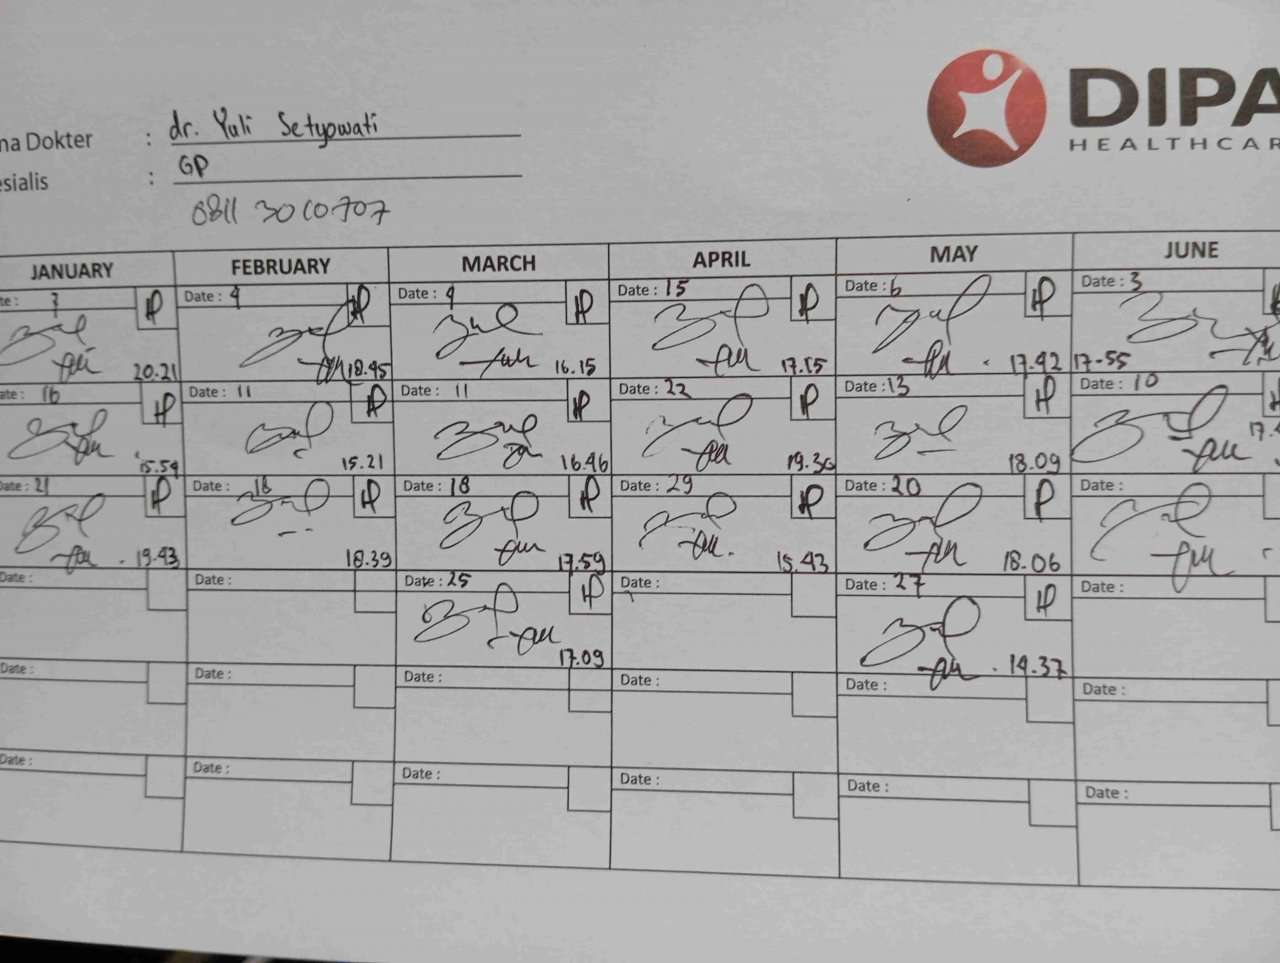 DIPA
HEALTHCAR
na Dokter : dr. Yuli Setyowati
esialis : GP
0811 3010707
JANUARY FEBRUARY MARCH APRIL MAY JUNE
te: 7 Date : 4 Date : 4 Date : 15 Date : 6 Date : 3
20.21 18.45 16.15 17.15 17.42 17-55
ate: 16 Date : 11 Date : 11 Date : 22 Date : 13 Date : 10
15.54 15.21 16.46 19.30 18.09 17.
Date : 21 Date : 18 Date : 18 Date : 29 Date : 20 Date :
19.43 18.39 17.59 15.43 18.06
Date : Date : Date : 25 Date : Date : 27 Date :
17.09 14.37
Date : Date : Date : Date : Date : Date :
Date : Date : Date : Date : Date : Date :